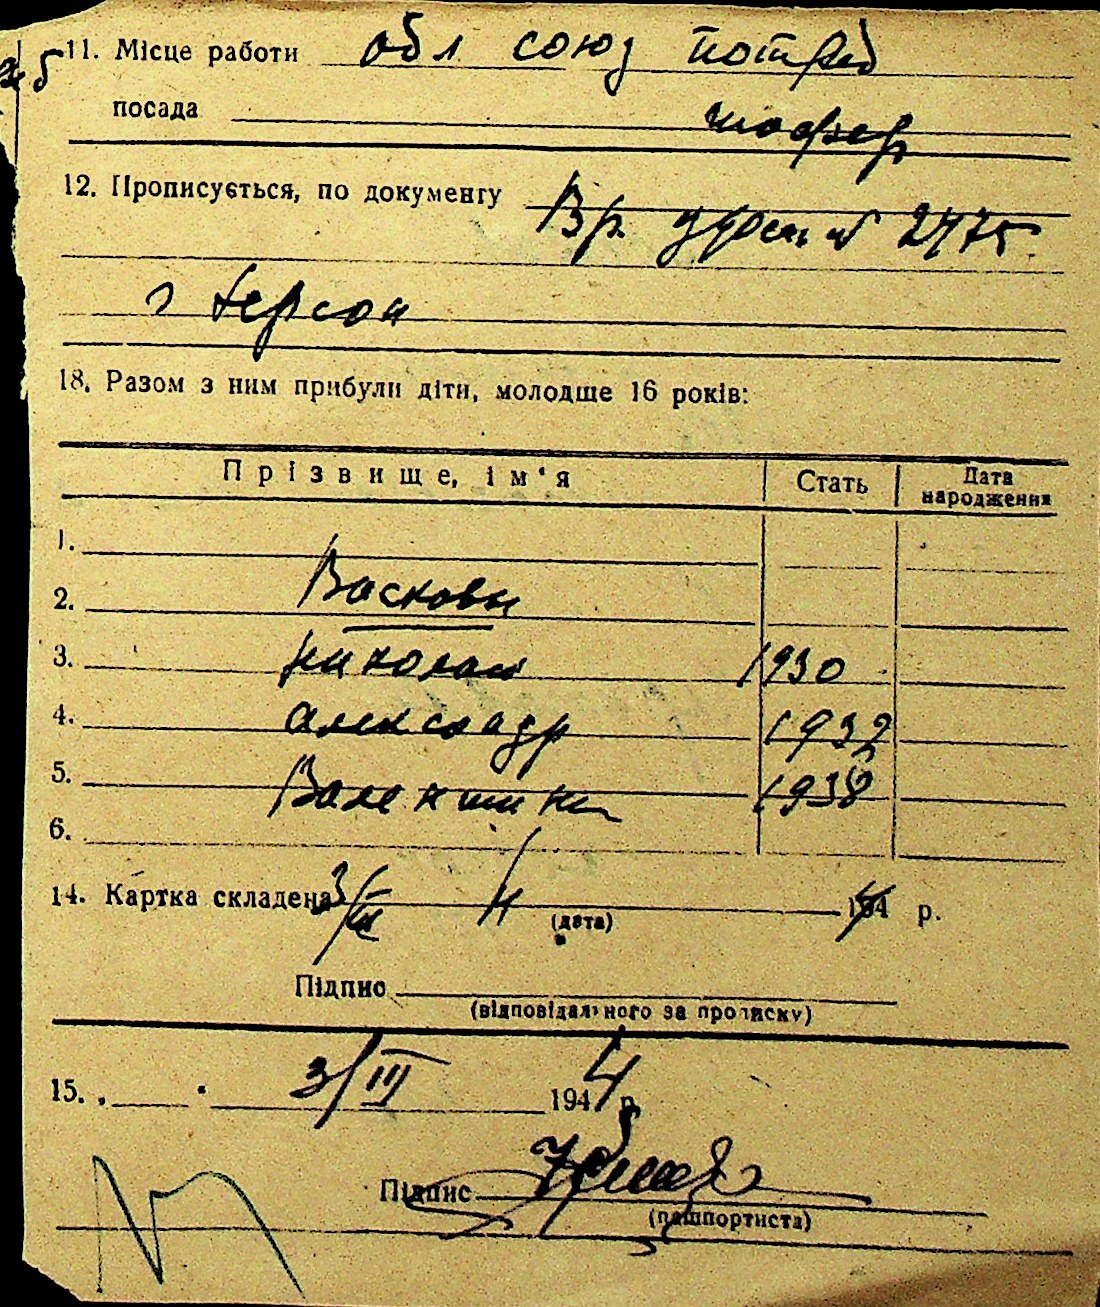 11. Місце работи обл союз потреб
посада шофер
12. Прописується, по документу Вр. удост № 2475
г Херсон
18. Разом з ним прибули діти, молодше 16 років:
Прізвище, ім'я Стать Дата народження
1.
2. Васковы
3. Николай 1930
4. Александр 1932
5. Валентина 1938
6.
14. Картка складена 3/III 4 194 р.
(дата)
Підпис
(відповідального за прописку)
15. „ “ 3/III 1944 р.
Підпис
(пашпортиста)